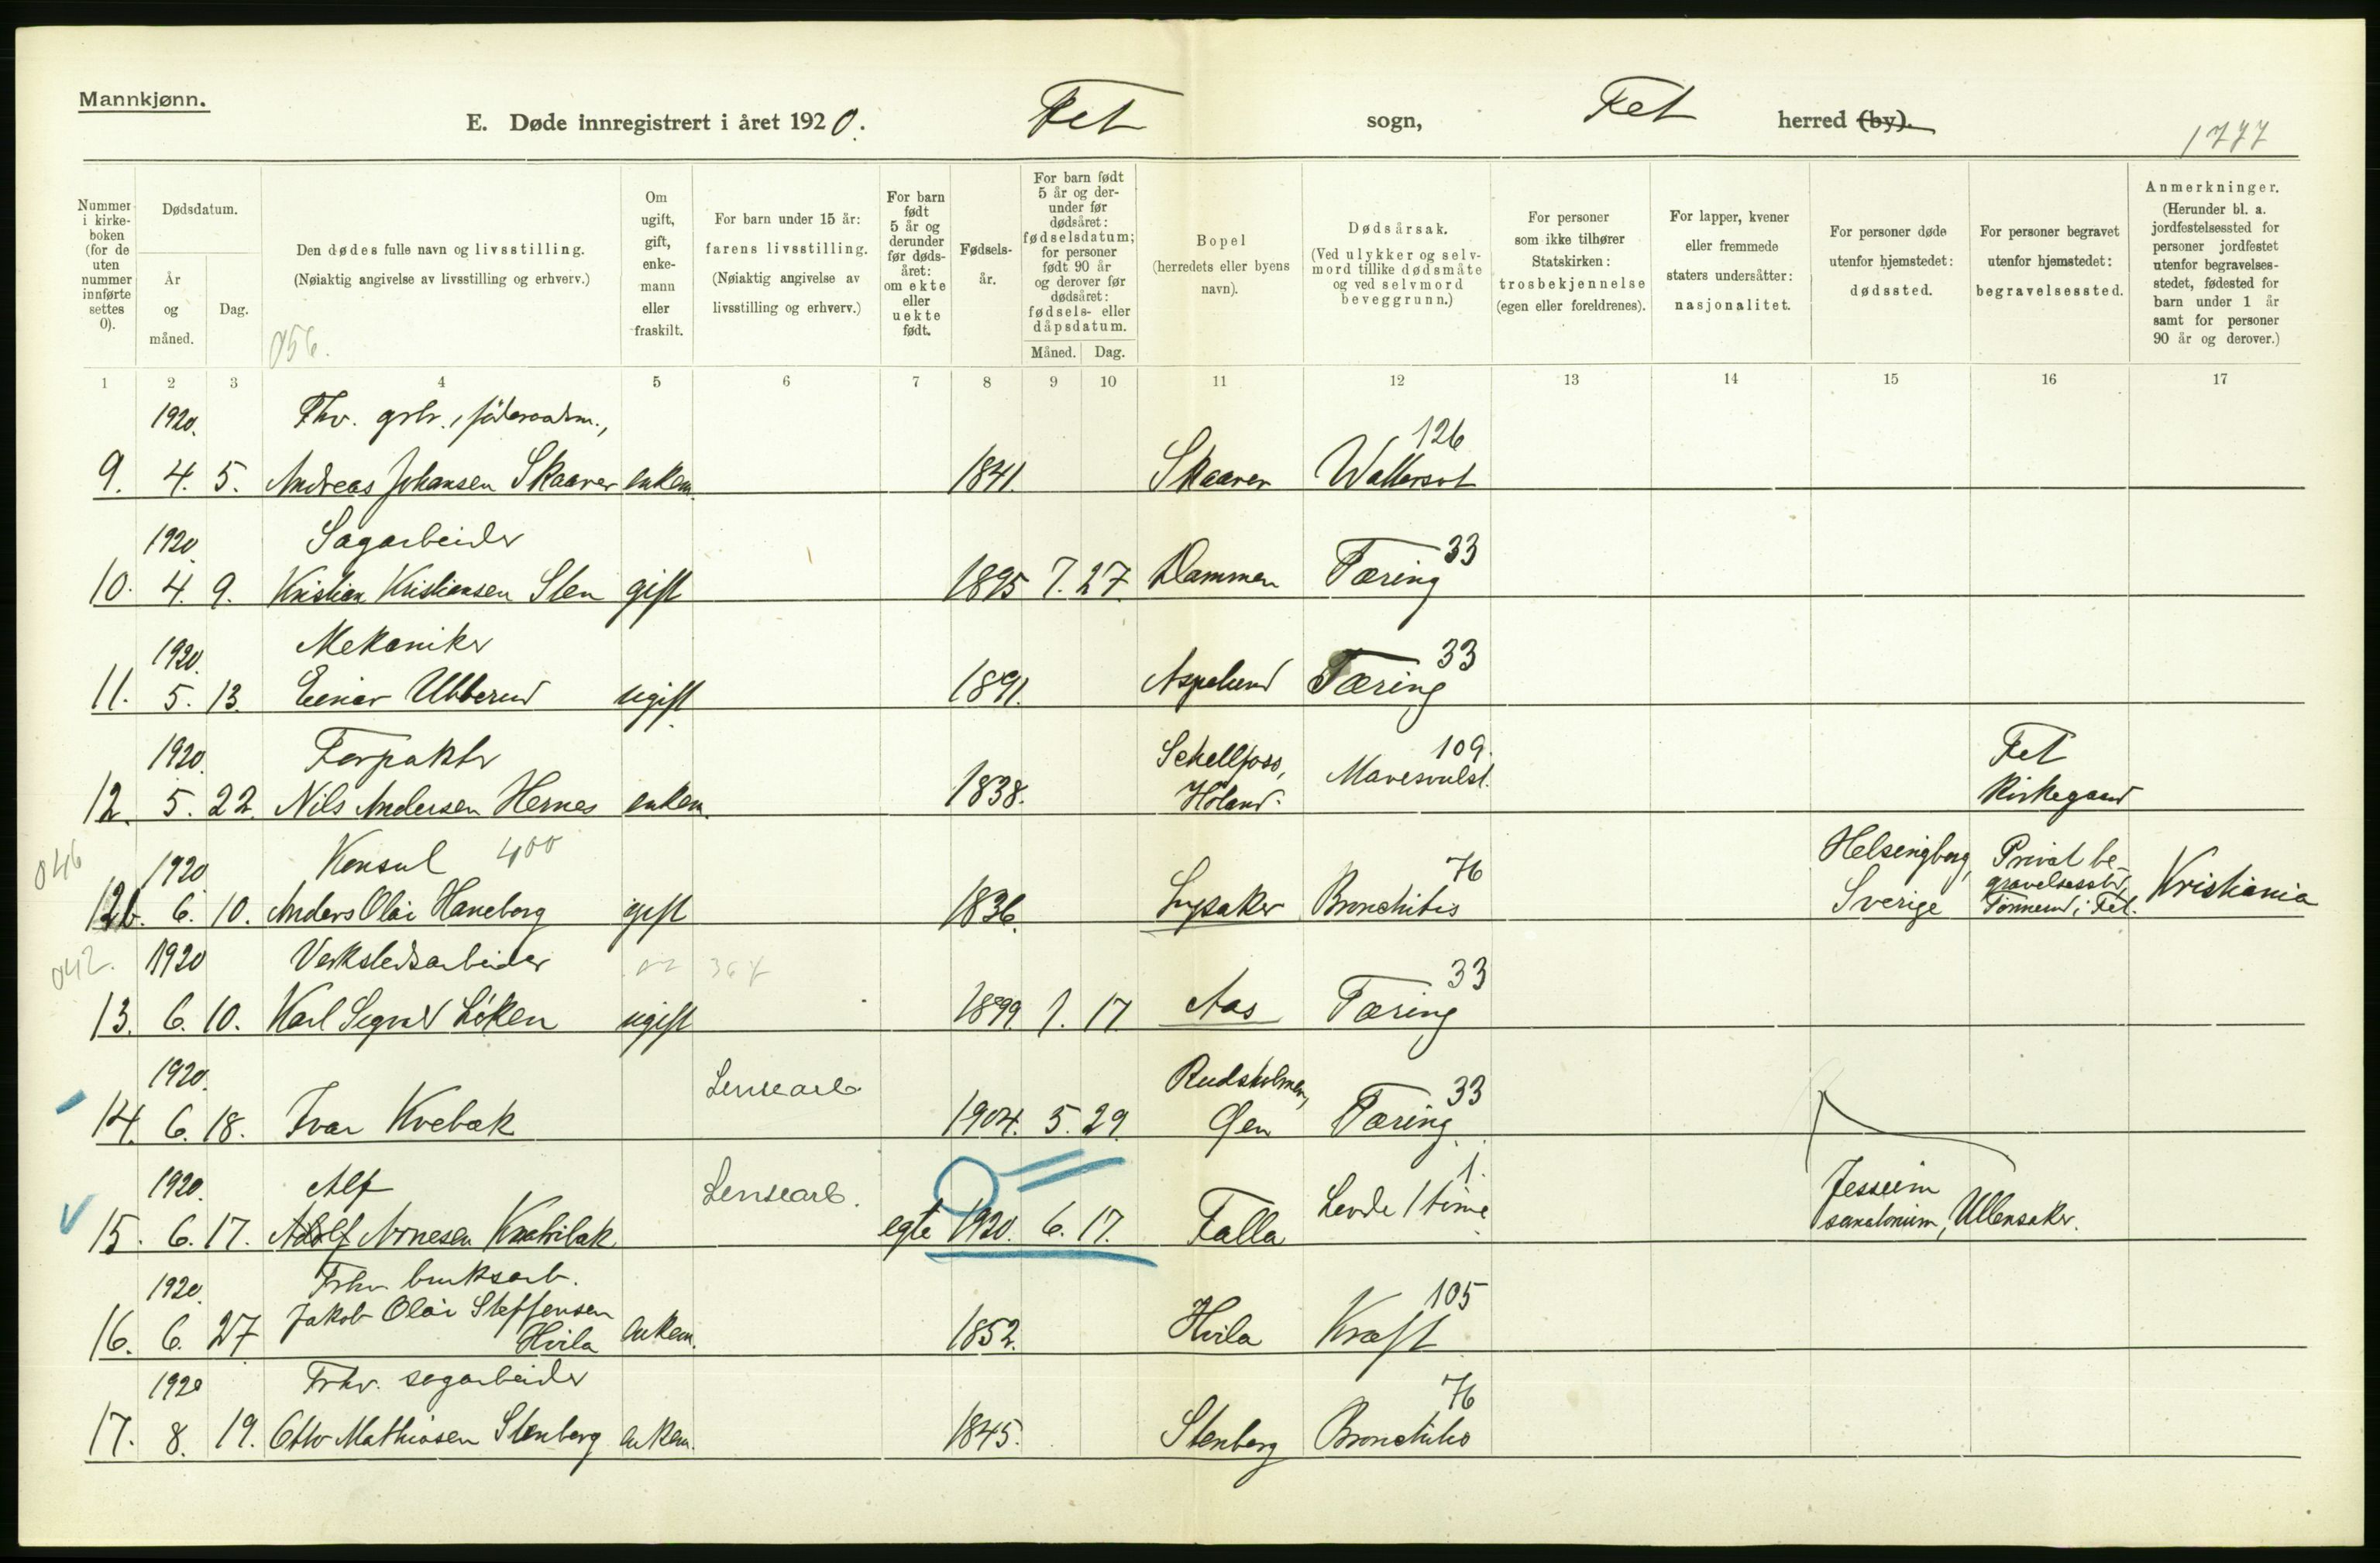 Mannkjønn.
E. Døde innregistrert i året 1920.
Fet sogn,
Fet herred (by).
1777
Nummer i kirke-boken (for de uten nummer innførte settes 0).
Dødsdatum.
År og måned.
Dag.
Den dødes fulle navn og livsstilling.
(Nøiaktig angivelse av livsstilling og erhverv.)
056.
Om ugift, gift, enke-mann eller fraskilt.
For barn under 15 år:
farens livsstilling.
(Nøiaktig angivelse av livsstilling og erhverv.)
For barn født 5 år og derunder før døds-året: om ekte eller uekte født.
Fødsels-år.
For barn født 5 år og der-under før dødsåret: fødselsdatum; for personer født 90 år og derover før dødsåret: fødsels- eller dåpsdatum.
Måned. Dag.
Bopel
(herredets eller byens navn).
Dødsårsak.
(Ved ulykker og selv-mord tillike dødsmåte og ved selvmord beveggrunn.)
For personer som ikke tilhører Statskirken: trosbekjennelse (egen eller foreldrenes).
For lapper, kvener eller fremmede staters undersåtter: nasjonalitet.
For personer døde utenfor hjemstedet: dødssted.
For personer begravet utenfor hjemstedet: begravelsessted.
Anmerkninger.
(Herunder bl. a. jordfestelsessted for personer jordfestet utenfor begravelses-stedet, fødested for barn under 1 år samt for personer 90 år og derover.)
1 2 3 4 5 6 7 8 9 10 11 12 13 14 15 16 17
1920. Fhv. grbr., föderaadsm., 126
9. 4. 5. Andreas Johansen Skaarer enkem. 1841. Skaarer Wattersot
1920. Sagarbeider 33
10. 4. 9. Kristian Kristiansen Sten gift 1895 7. 27. Dammen Tæring
1920. Mekaniker 33
11. 5. 13. Einar Ubberud ugift 1891. Aspelund Tæring
1920. Forpakter Schellfoss, 109. Fet
12. 5. 22. Nils Andersen Hernes enkem. 1838. Höland. Mavesvulst. Kirkegaard
046 1920 Konsul 400 76 Helsingborg, Privat be-gravelsesst.,
12b. 6. 10. Anders Olai Haneborg gift 1836. Lysaker Bronchitis Sverige Tönnerud i Fet. Kristiania
042. 1920 Verkstedsarbeider 02 367 33
13. 6. 10. Karl Sigvald Löken ugift 1899. 1. 17 Aas Tæring
1920. Lensearb. Rudsholmen, 33
14. 6. 18. Ivar Kvebæk 1904. 5. 29. Øen Tæring
1920. Alf Lensearb. 1. Jessheim
15. 6. 17. Adolf Arnesen egte 1920. 6. 17. Falla Levde 1 time sanatorium, Ullensaker.
1920. Frhv. bruksarb. 105
Jakob Olai Steffensen
16. 6. 27 Hvila enkem. 1852. Hvila Kræft
1920 Frhv. sagarbeider 76
17. 8. 19. Otto Mathiasen Stenberg enkem. 1845. Stenberg Bronchitis